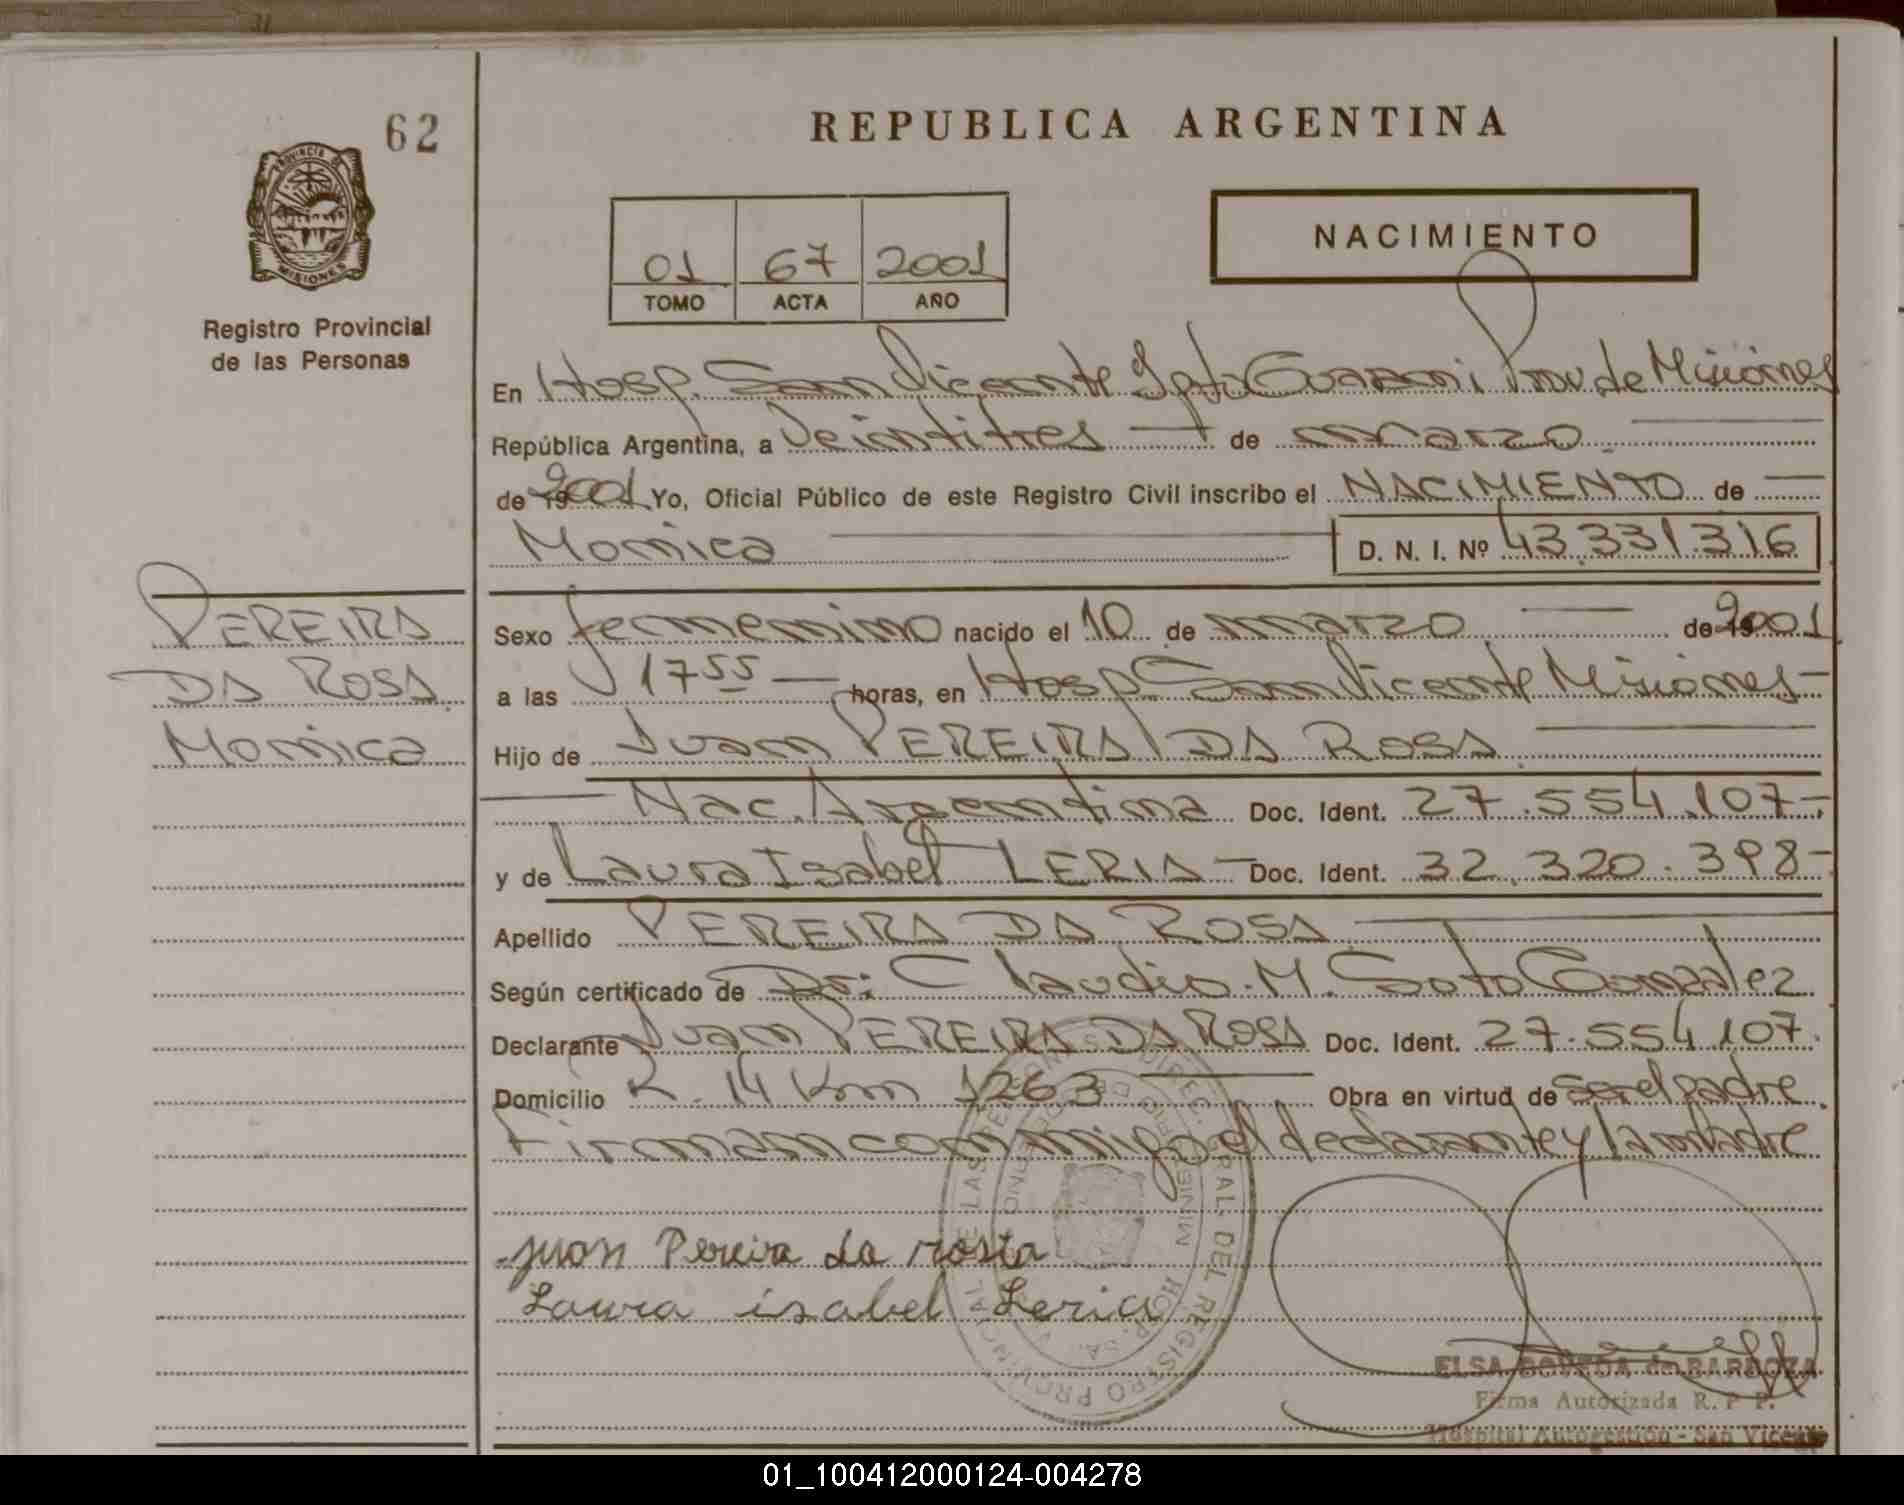 62
PROVINCIA DE
MISIONES
Registro Provincial
de las Personas
REPUBLICA ARGENTINA
NACIMIENTO
01 67 2001
TOMO ACTA AÑO
En Hosp. San Vicente Dpto Guarani Prov de Misiones
República Argentina, a Veintitres de marzo
de 19 2001 Yo, Oficial Público de este Registro Civil inscribo el NACIMIENTO de
Monica D. N. I. Nº 43.331.316
PEREIRA
DA ROSA
Monica
Sexo femenino nacido el 10 de marzo de 19 2001
a las 17 55 horas, en Hosp San Vicente Misiones
Hijo de Juan PEREIRA DA ROSA
Nac. Argentina Doc. Ident. 27.554.107-
y de Laura Isabel LERIA Doc. Ident. 32.320.398-
Apellido PEREIRA DA ROSA
Según certificado de Dr: Claudio. M. Soto Gonzalez
Declarante Juan PEREIRA DA ROSA Doc. Ident. 27.554.107.
Domicilio R. 14 Km 1263 Obra en virtud de ser el padre
Firman conmigo el declarante y la madre
juan Pereira da rosa
Laura isabel Leria
DIREC. GRAL. DEL REGISTRO PROVINCIAL DE LAS PERSONAS
ELSA BOVEDA de BARBOZA
Firma Autorizada R. P. P.
Hospital Autogestión - San Vicente
01_100412000124-004278